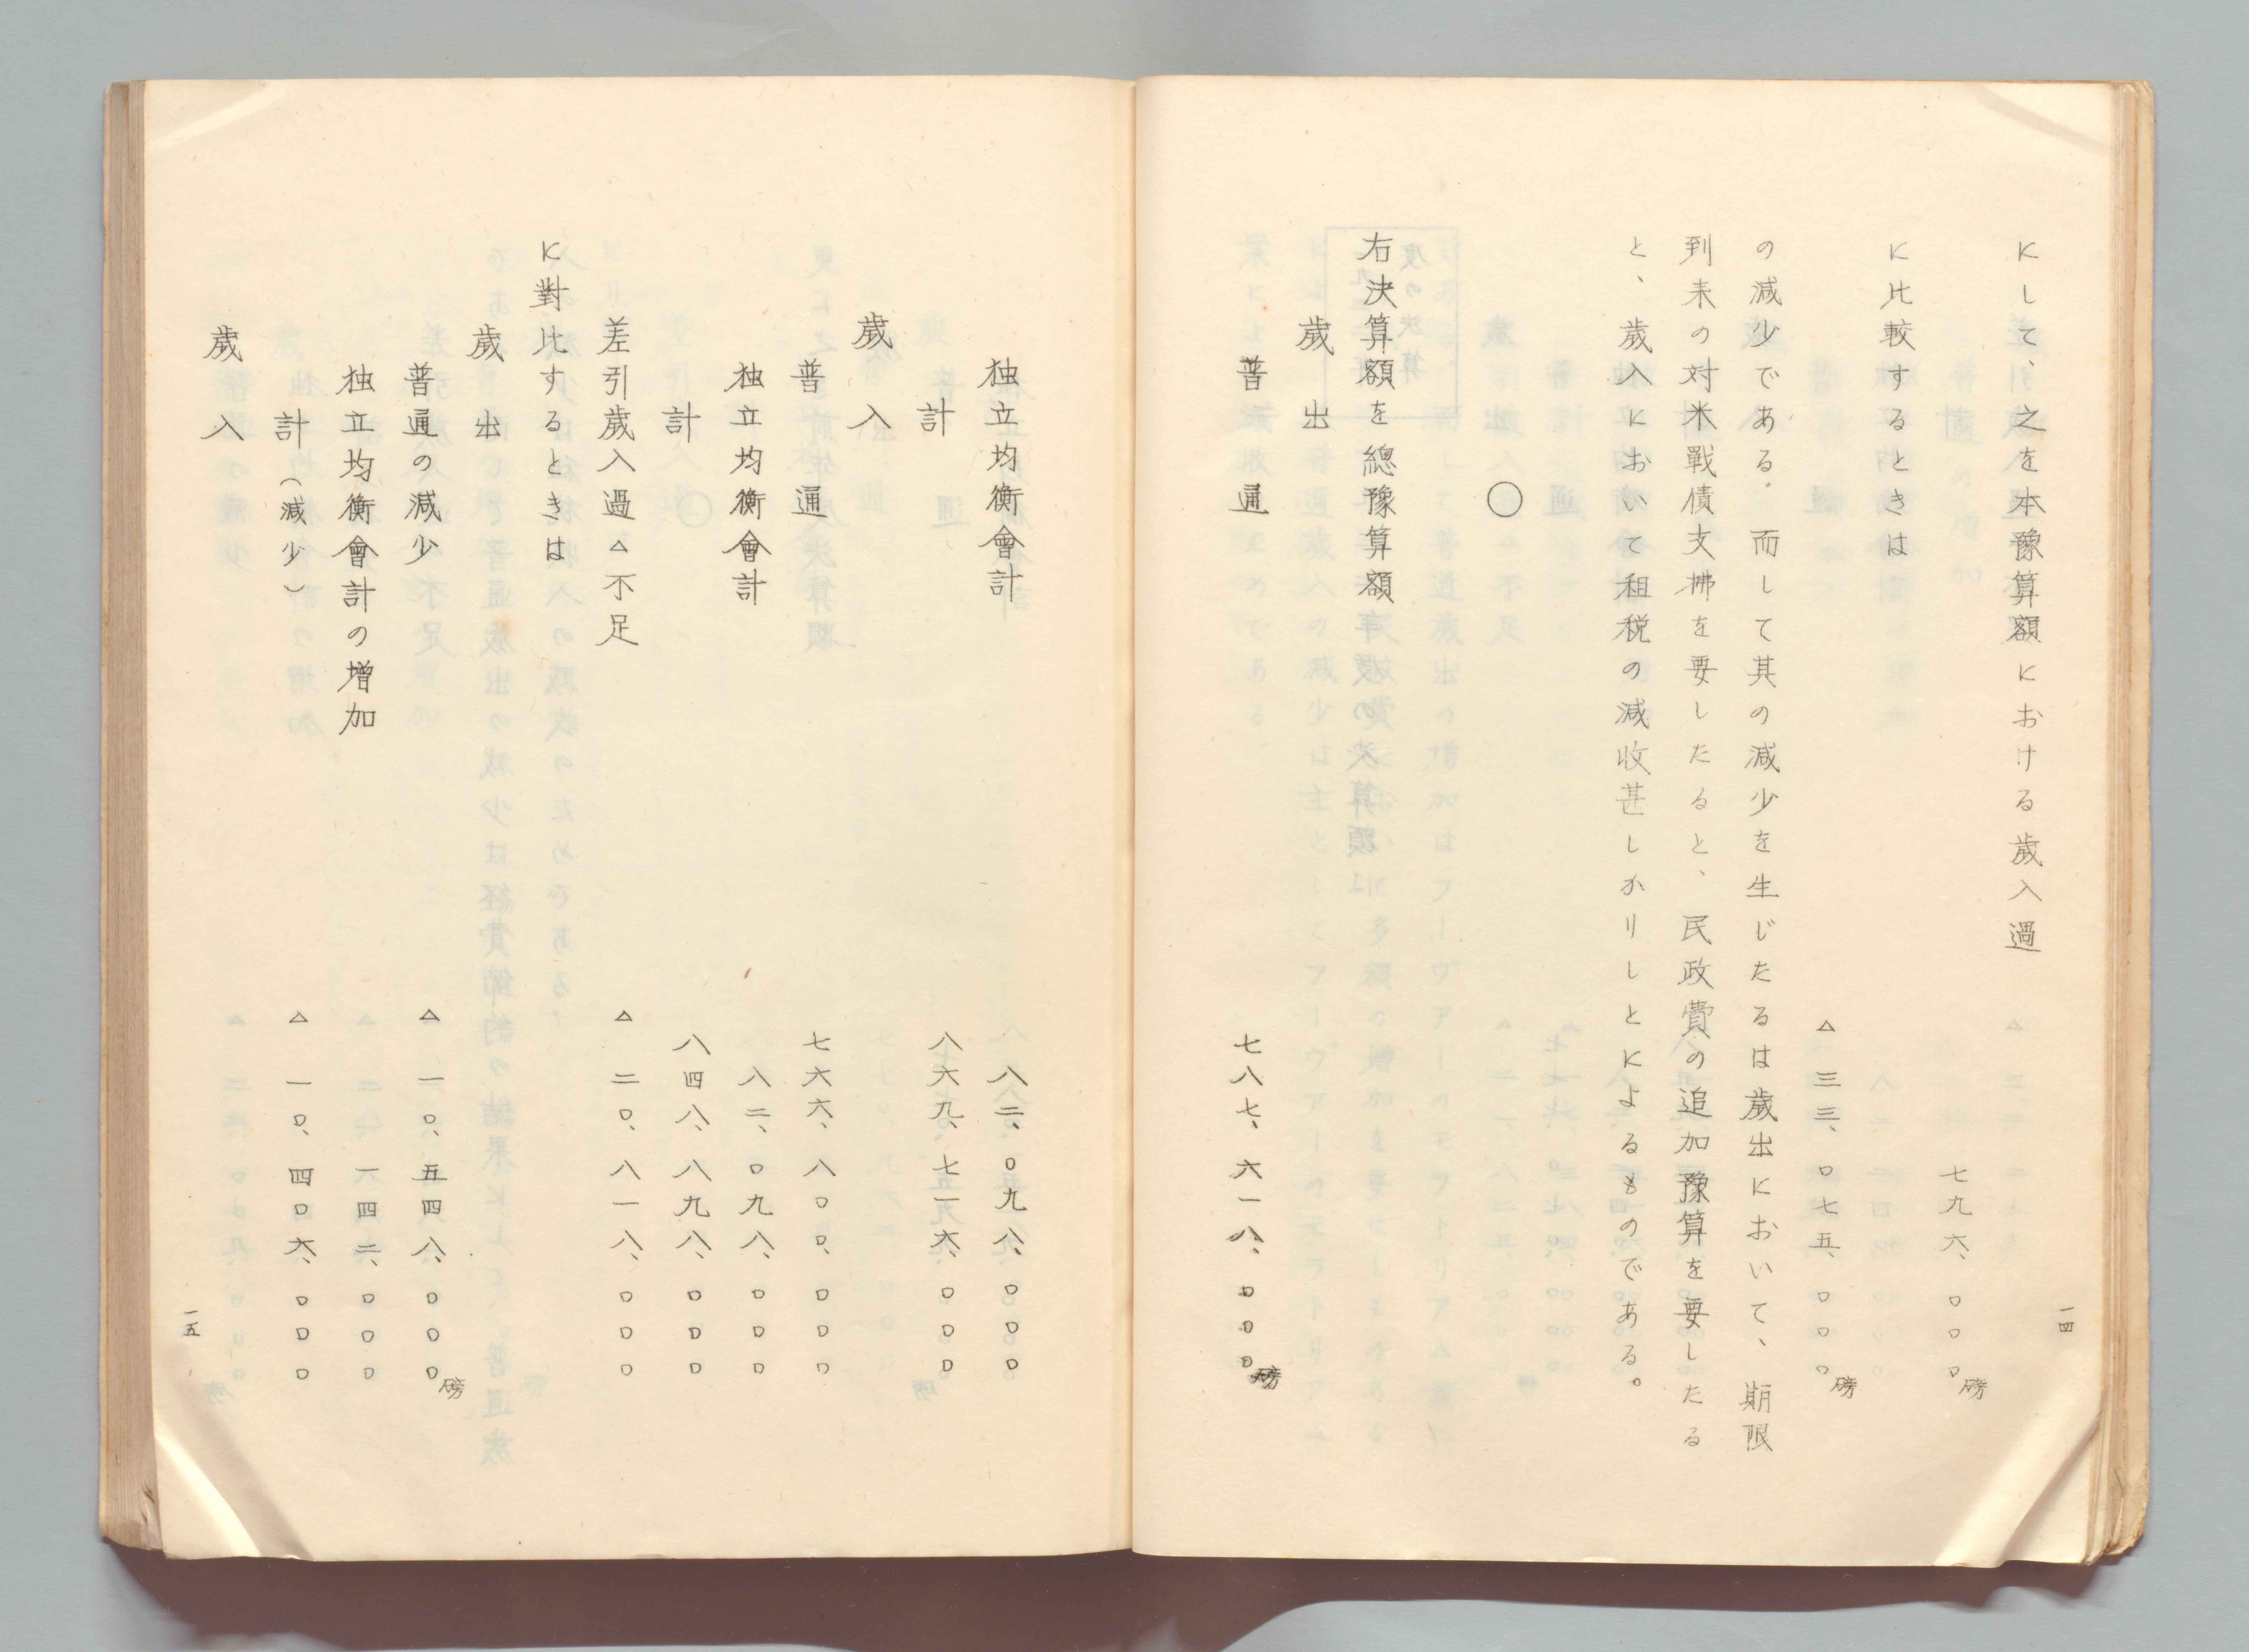 にして、之を本豫算額における歲入過
七九六、〇〇〇磅
に比較するときは
△三三、〇七五、〇〇〇磅
の減少である。而して其の減少を生じたるは歲出において、期限
到来の対米戰債支拂を要したると、民政費の追加豫算を要したる
と、歲入において租税の減收甚しかりしとによるものである。
〇
右決算額を總豫算額
歲出
普通 七八七、六一八、〇〇〇磅
一四
独立均衡會計 八二、〇九八、〇〇〇
計 八六九、七一六、〇〇〇
歲入
普通 七六六、八〇〇、〇〇〇
独立均衡會計 八二、〇九八、〇〇〇
計 八四八、八九八、〇〇〇
差引歲入過△不足 △二〇、八一八、〇〇〇
に對比するときは
歲出
普通の減少 △一〇、五四八、〇〇〇磅
独立均衡會計の増加 一四二、〇〇〇
計(減少) △一〇、四〇六、〇〇〇
歲入
一五